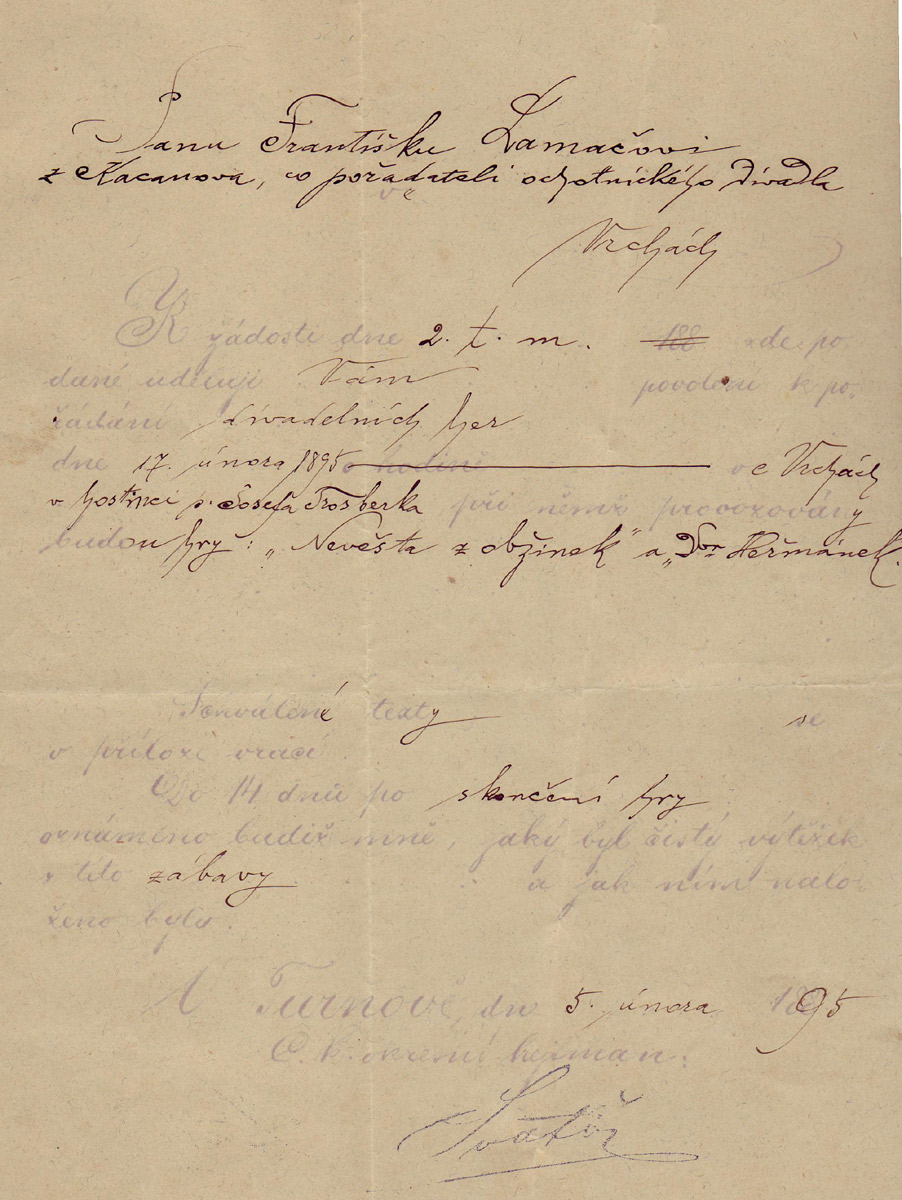 Panu Františku Lamačovi
z Kacanova, co pořadateli ochotnického divadla
ve
Vrchách
K žádosti dne 2. t. m. 188 zde po-
dané uděluji Vám povolení k po-
řádání divadelních her
dne 17. února 1895 o hodině ve Vrchách
v hostinci p. Josefa Trosberka při němž provozovány
budou hry: „Nevěsta z obžinek" a „Dor Heřmánek.
Schválené texty se
v příloze vrací.
Do 14 dnů po skončení hry
oznámeno budiž mně, jaký byl čistý výtěžek
z této zábavy a jak ním nalo-
ženo bylo.
V Turnově, dne 5. února 1895
C. k. okresní hejtman: